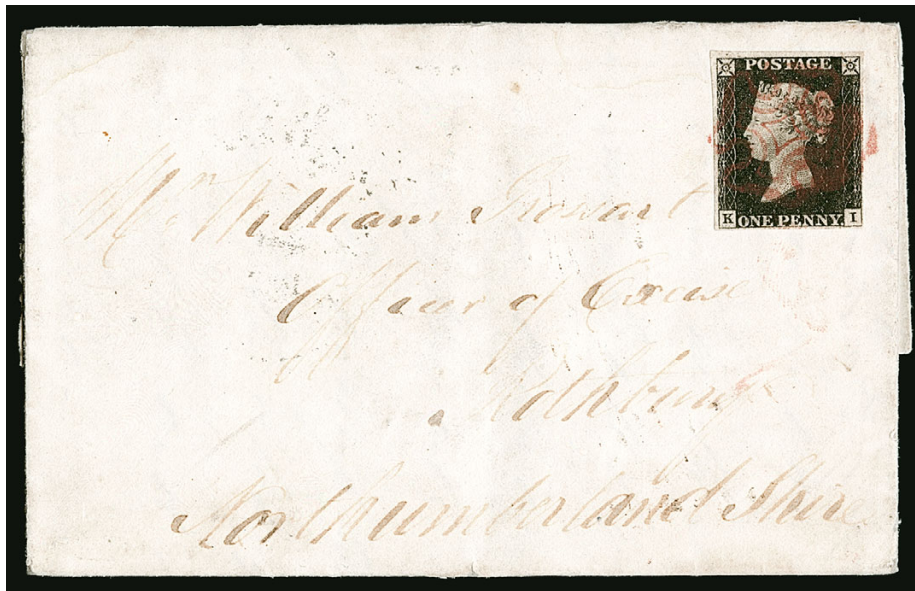 POSTAGE
K ONE PENNY. I
Mr William Growart
Officer of Excise
Rothbury
Northumberland Shire